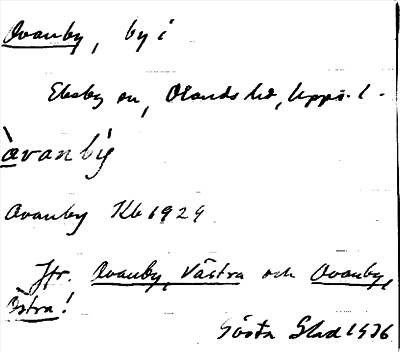 Ovanby, by i
Ekeby sn, Olands hd, Upps. l.
àvanbý
Ovanby Kb 1929
Jfr. Ovanby, Västra och Ovanby,
Östra!
Gösta Blad 1936